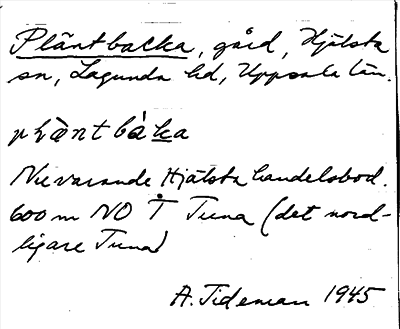 Pläntbacka, gård, Hjälsta
sn, Lagunda hd, Uppsala län.
plὰntbὰka
Nuvarande Hjälsta handelsbod.
600 m NO Ṫ Tuna (det nord-
ligare Tuna)
A. Tideman 1945